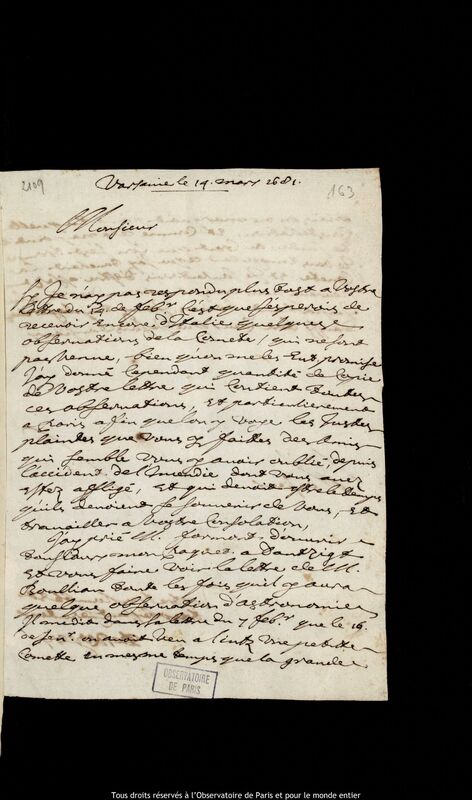 2109
Varsavie le 14. mars 1681.
163
Monsieur
Si Je n'ay pas respondu plus tost a Vostre
lettre du 14 de feb.r c'est que j'esperois de
recevoir encore d'Italie quelques
observations de la Comete, qui ne sont
pas venues, bien qu'on me les eut promises
J'ay donné cependant quantité de Copie
de Vostre lettre qui Contient toutes
ces observations, et particulierement
a Paris afin que l'on y voye les Justes
plaintes que vous y faittes des Amis
qui semble vous avoir oublié, depuis
l'accident de l'Incendie dont vous avez
esté affligé, et qui devoit estre le temps
qu'ils devoient se souvenir de Vous, et
travailler a Vostre Consolation,
J'ay prié M. formont d'ouvrir
tousjours mon paquet a Dantzigt
Et vous faire voir la lettre de M.
Boulliau toute les fois qu'il y aura
quelque observation d'astronomie
Il me dit dans sa lettre du 7 feb.r que le 16
de Jan.r on avoit veu a Lintz une petite
Comette en mesme temps que la grande
OBSERVATOIRE
DE PARIS
Tous droits réservés à l'Observatoire de Paris et pour le monde entier